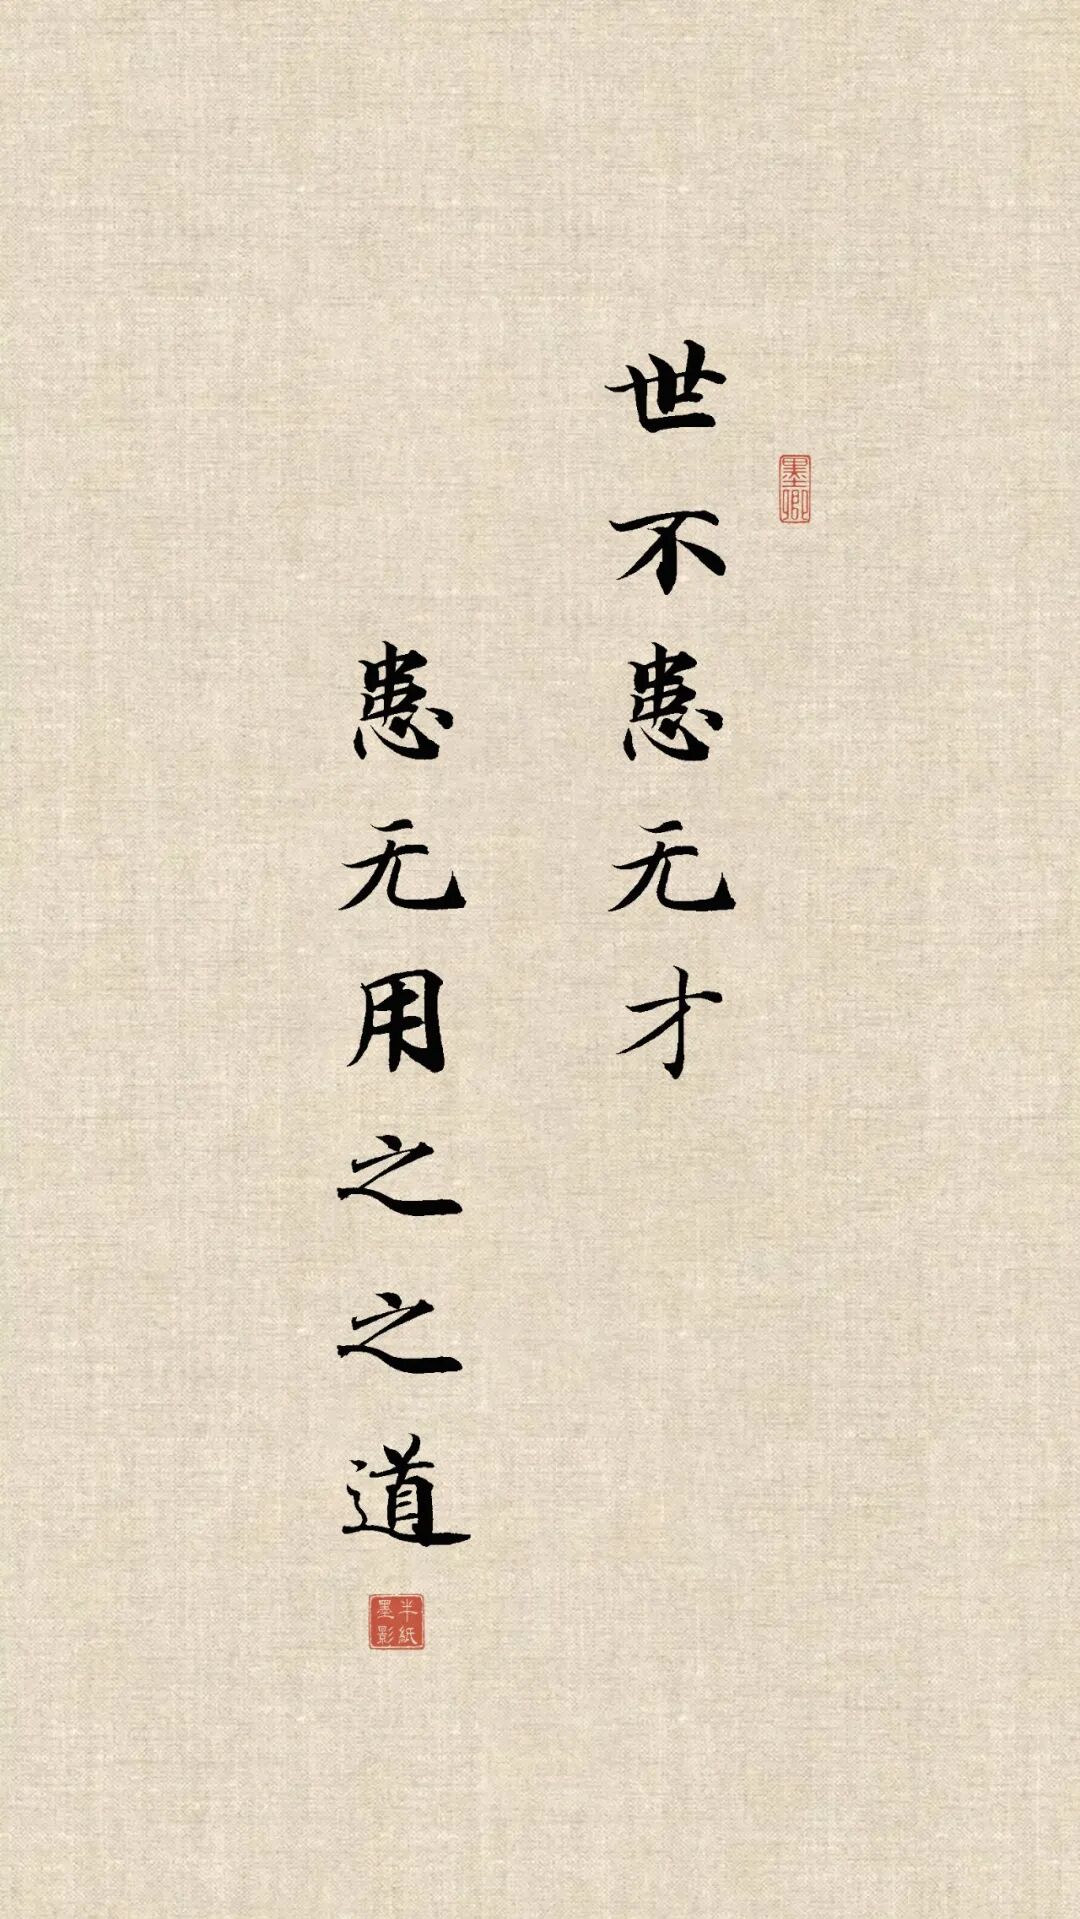 世不患无才
患无用之之道
墨卿
半紙
墨影